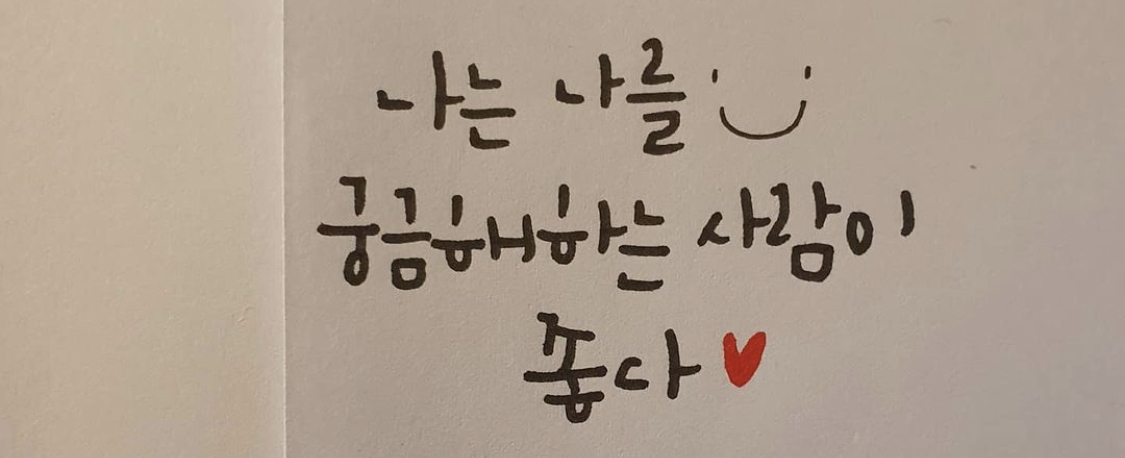 나는 나를
궁금해하는 사람이
좋다